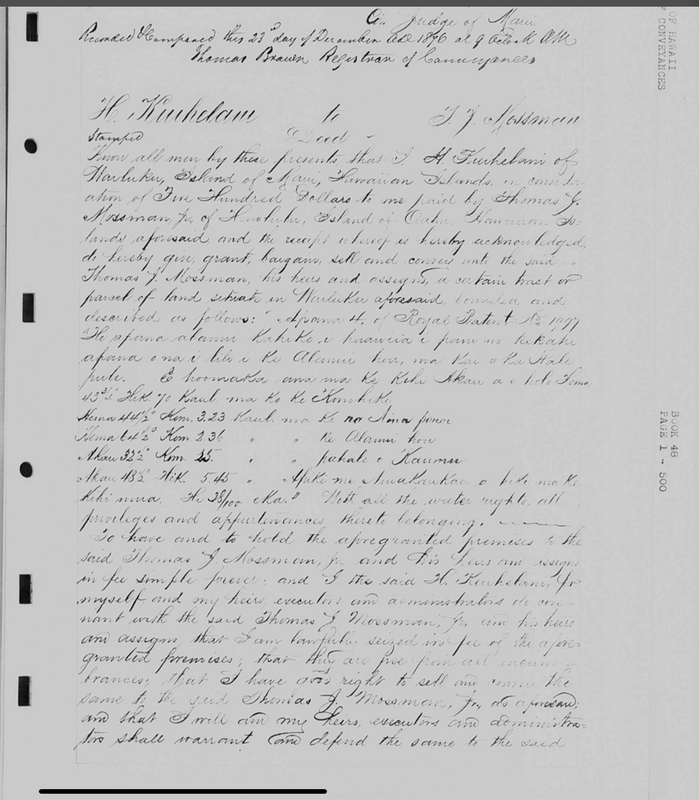 Cir. Judge of Maui
Recorded & Compared this 23d day of December AD 1876 at 9 Oclk AM
Thomas Brown Registrar of Conveyances
H. Kuihelani to T. J. Mossman
Stamped Deed
Know all men by these presents that I H Kuihelani of
Wailuku, Island of Maui, Hawaiian Islands, in consider-
ation of Five Hundred Dollars to me paid by Thomas J.
Mossman, jr. of Honolulu, Island of Oahu, Hawaiian Is-
lands aforesaid and the receipt whereof is hereby acknowledged,
do hereby give, grant, bargain, sell and convey unto the said
Thomas J. Mossman, his heirs and assigns, a certain tract or
parcel of land situate in Wailuku aforesaid, bounded and
described as follows: "Apana 4, of Royal Patent No 1997
"He apana alanui kahiko i
apana o na ili i ke Alanui hou, ma ke o ka Hale
pule. E hoomaka ana ma ke Kihi Akau a e holo Hema
43¾° Hik. 70 Kaul. ma ko ke Konohiki
Hema 44½° Kom. 3.23 Kaul. ma ka Aina
Hema 64½° Kom. 2.36 " " ke Alanui hou
Akau 32½° Kom. 25 " " pahale o
Akau 48½° Hik. 5.45 " a hiki ma ke
kihi mua. He 38/100 eka." With all the water rights, all
privileges and appurtenances thereto belonging.
To have and to hold the aforegranted premises to the
said Thomas J. Mossman, jr. and his heirs and assigns
in fee simple forever; and I the said H. Kuihelani, for
myself and my heirs, executors and administrators do cove-
nant with the said Thomas J Mossman, jr. and his heirs
and assigns, that I am lawfully seized in fee of the afore-
granted premises; that they are free from all incum-
brances; that I have good right to sell and convey the
same to the said Thomas J Mossman, jr. as aforesaid;
and that I will and my heirs, executors and administra-
tors shall warrant and defend the same to the said
OF HAWAII
CONVEYANCES
BOOK 48
PAGE 1 - 500